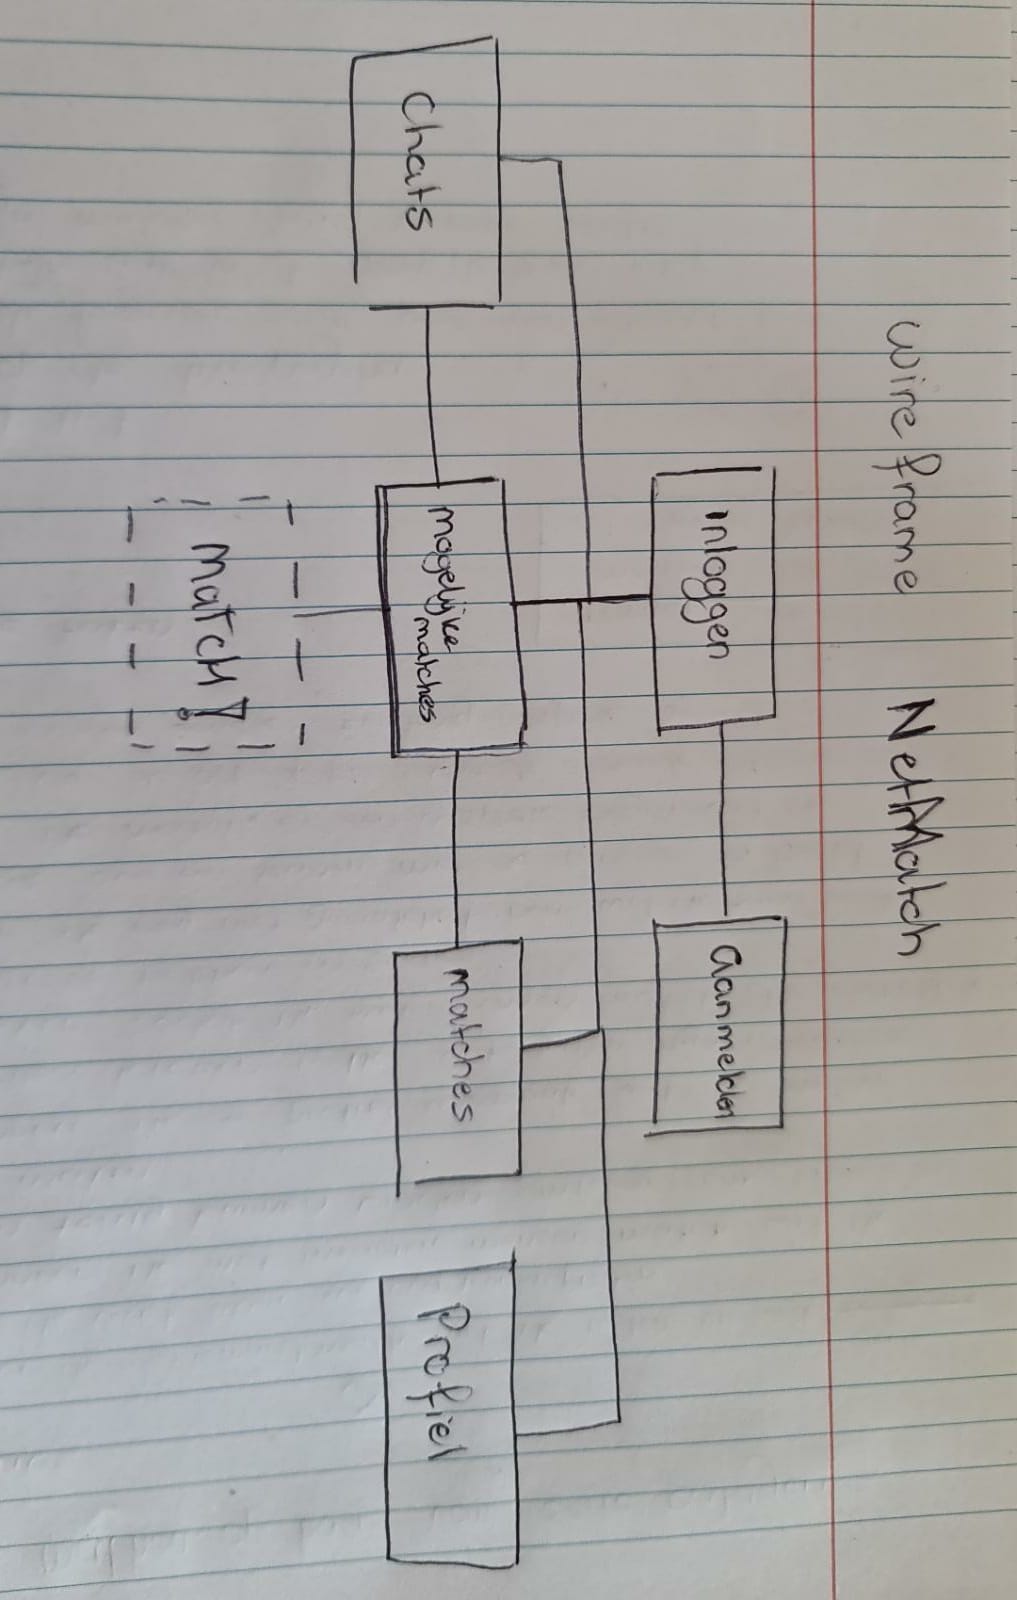 wireframe NetMatch
inloggen
aanmelden
chats
mogelijke
matches
matches
Profiel
MATCH!